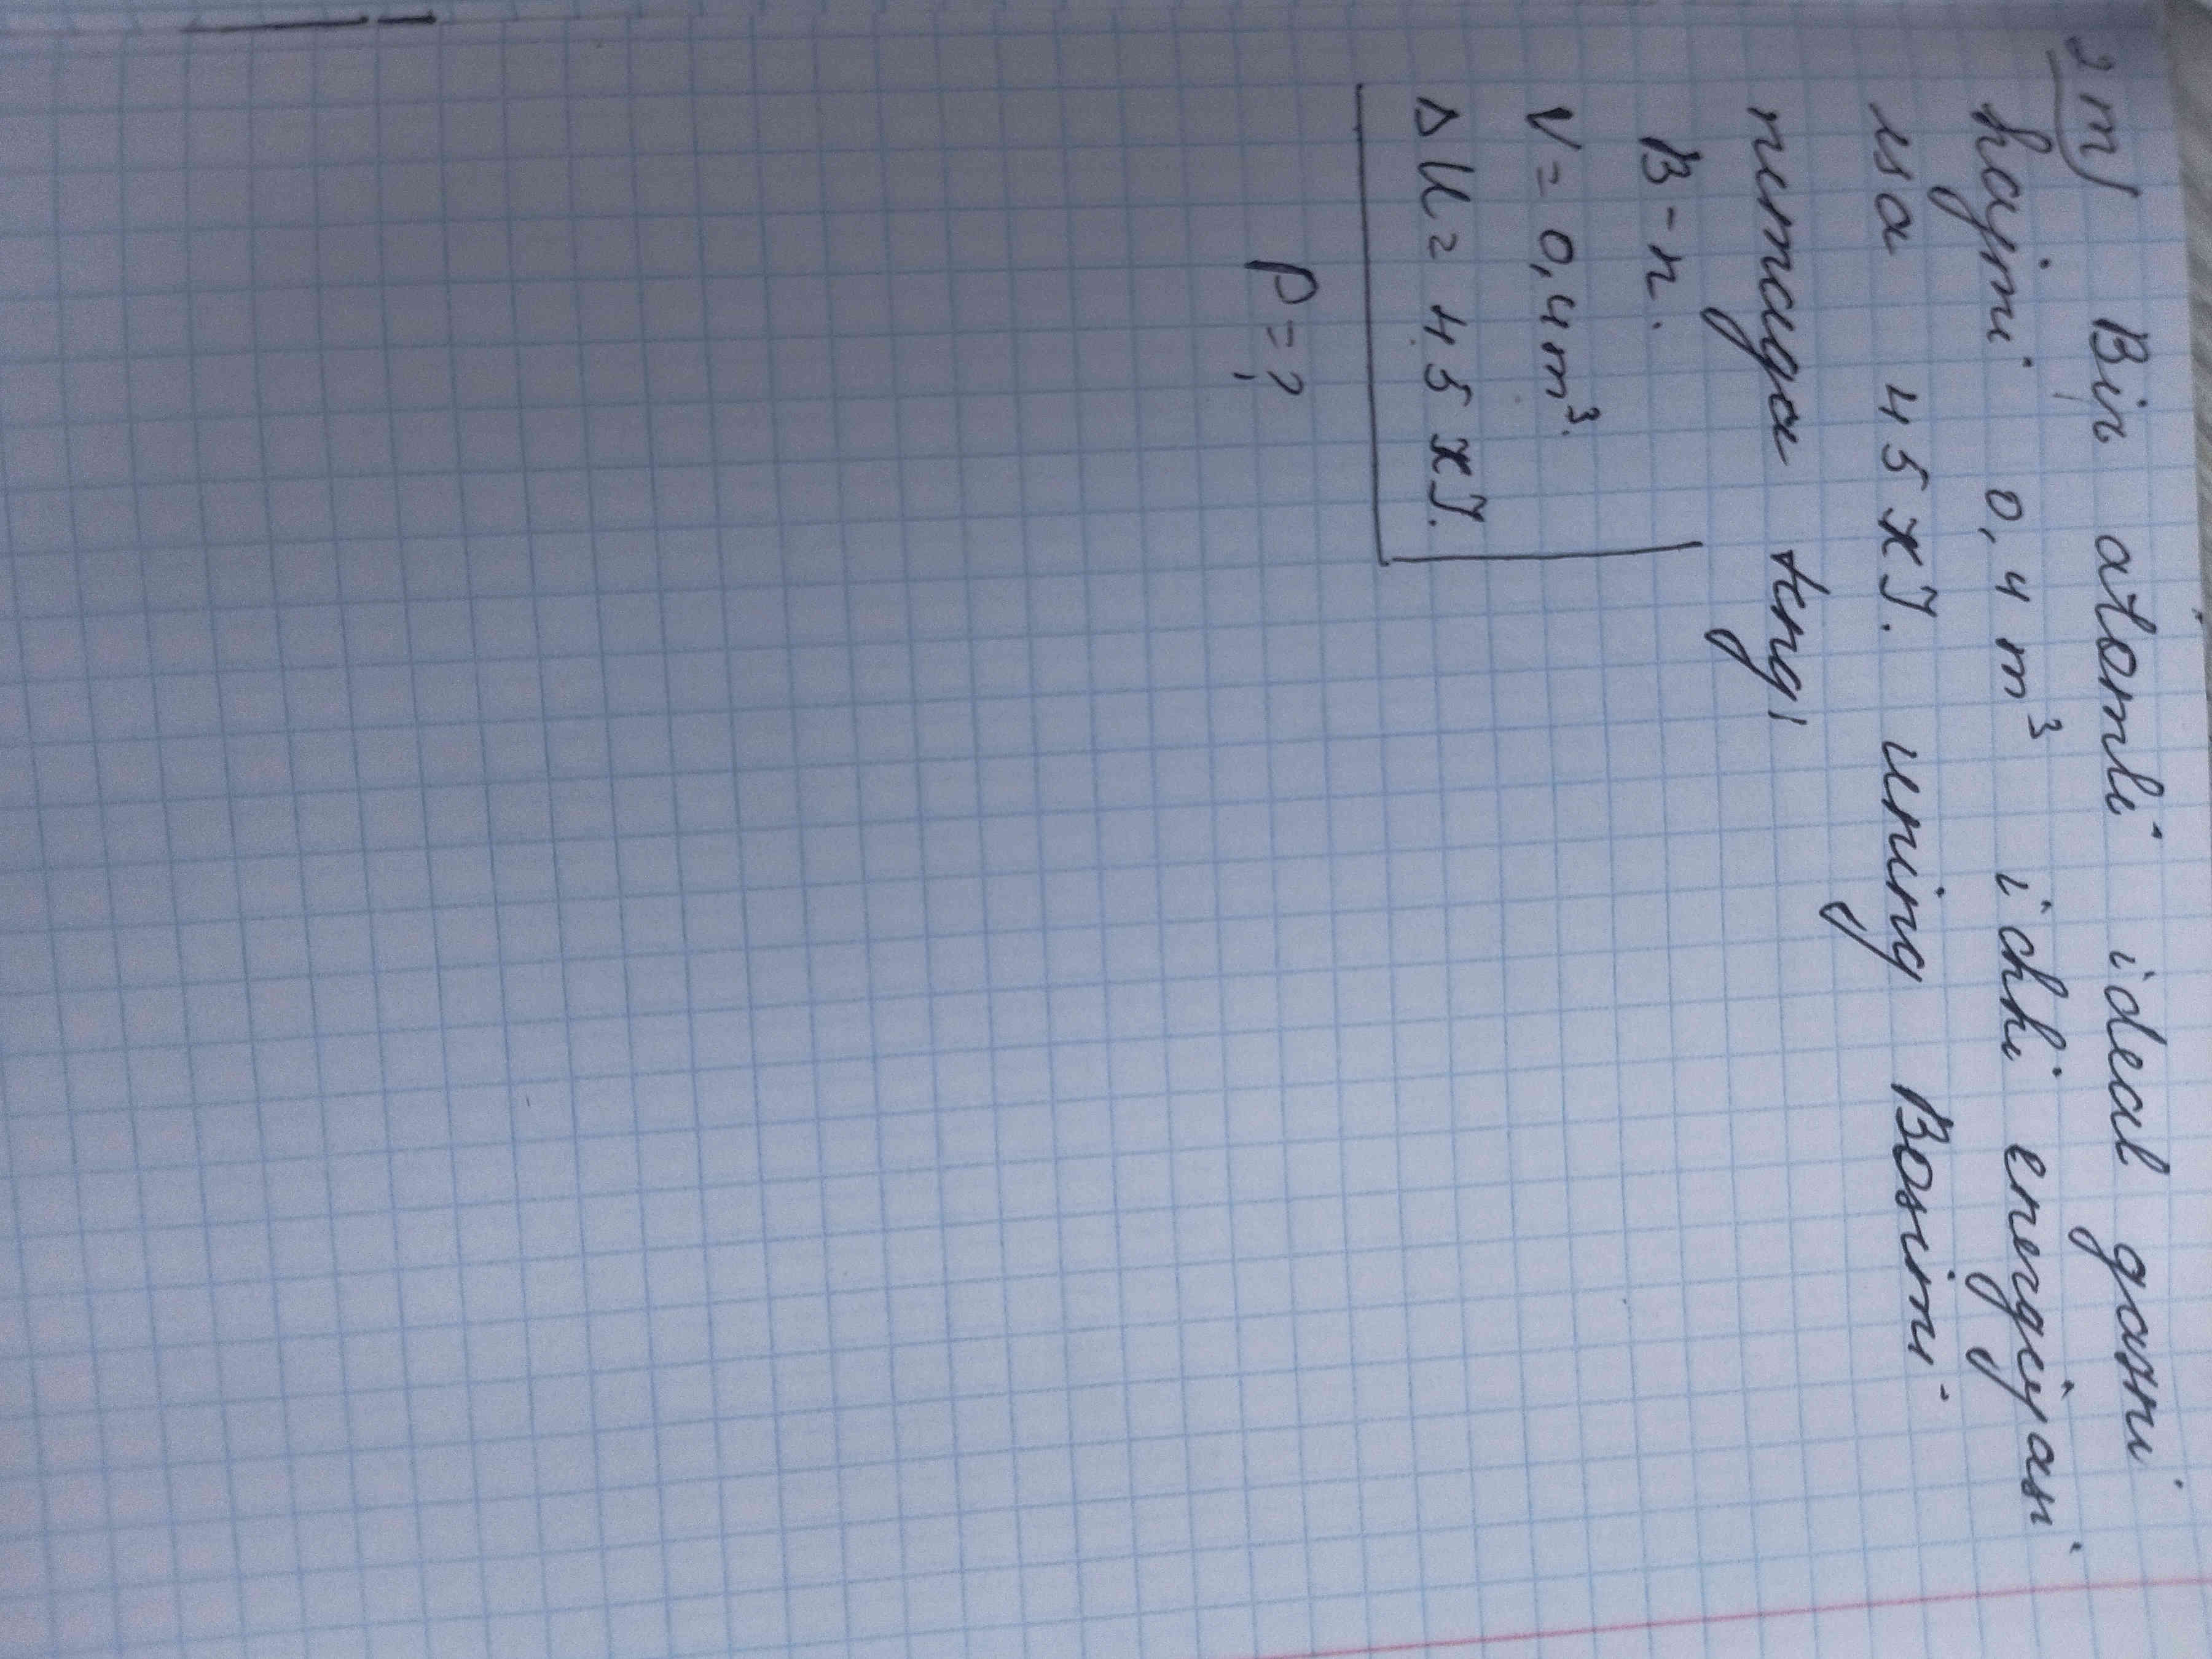 2m) Bir atomli ideal gazni
hajmi 0,4 m³ ichki energiyasi
esa 45 кJ. uning Bosimi
nimaga teng!
B-n.
V = 0,4 m³.
ΔU = 45 кJ.
P = ?